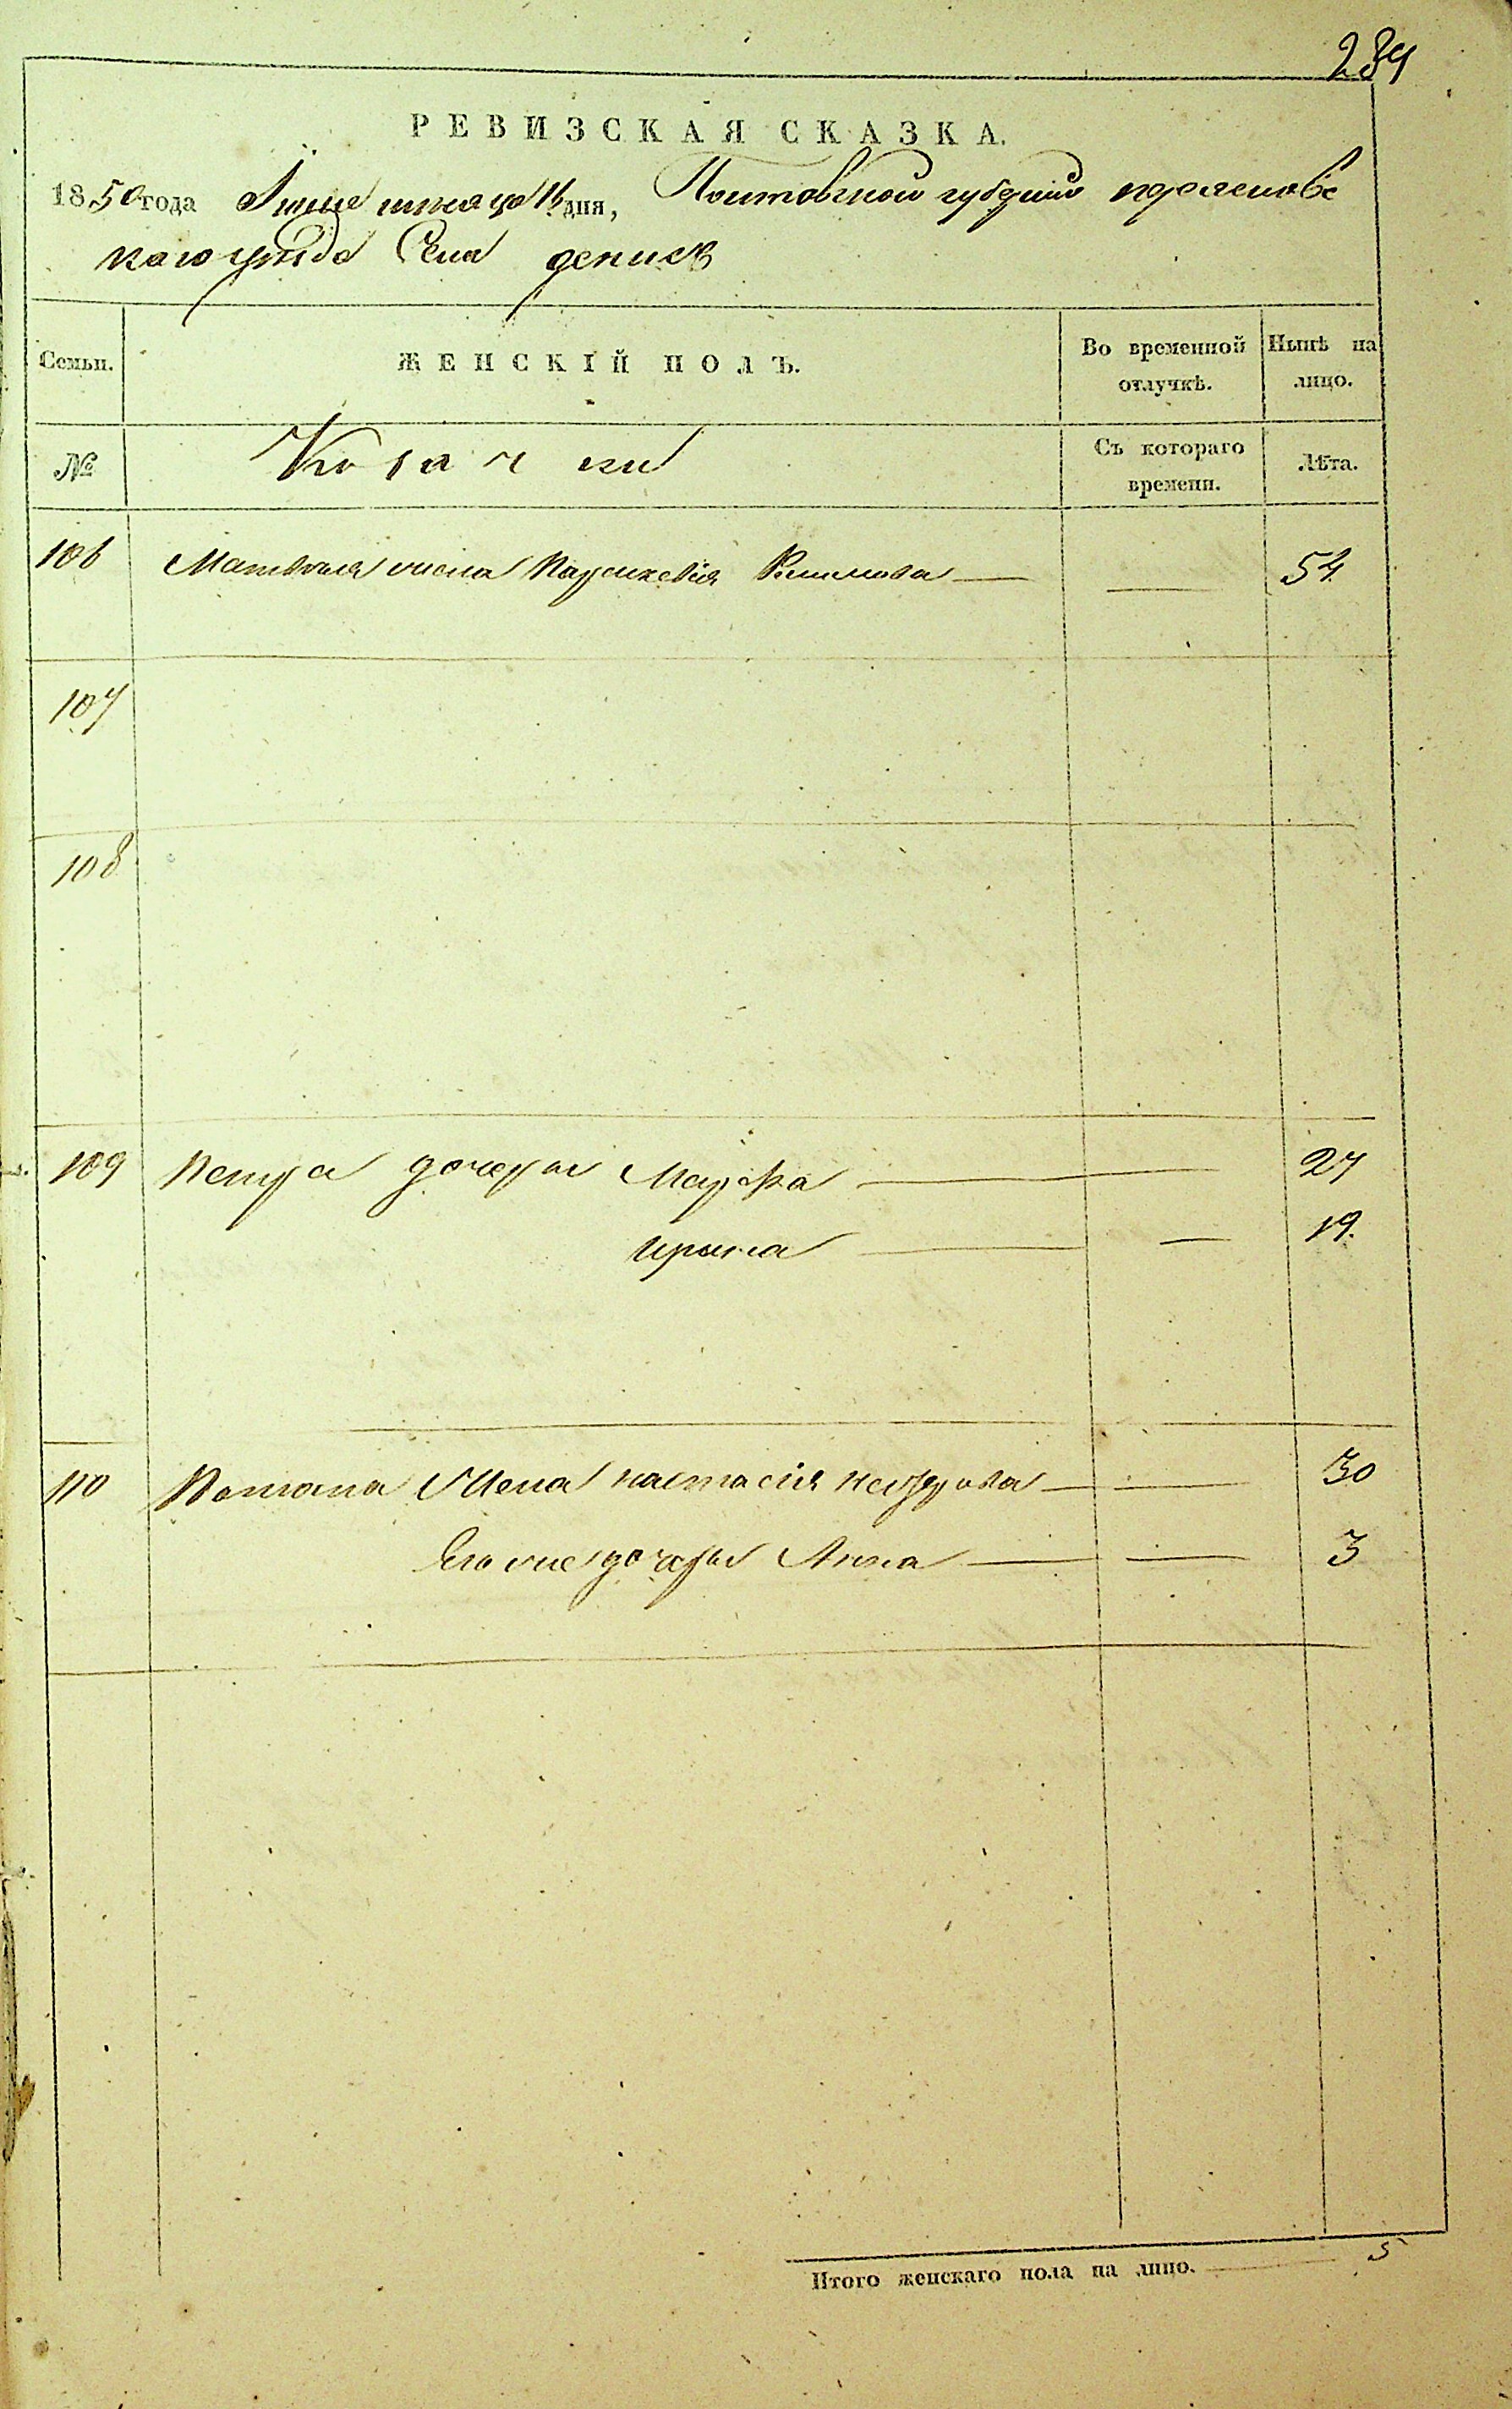 284
РЕВИЗСКАЯ СКАЗКА.
1850 года Іюня месяца дня, Полтавской губерніи переяславс
каго уезда Села денисъ
Семьи. ЖЕНСКІЙ ПОЛЪ. Во временной отлучкѣ. Нынѣ на лицо.
№ Козачки Съ котораго времени. Лѣта.
106 жена Климова 54
107
108
109 Петра дочери Марфа 27
Ирина 19.
110 Романа Жена настасія 30
Его же дочери Анна 3
Итого женскаго пола на лицо. 5